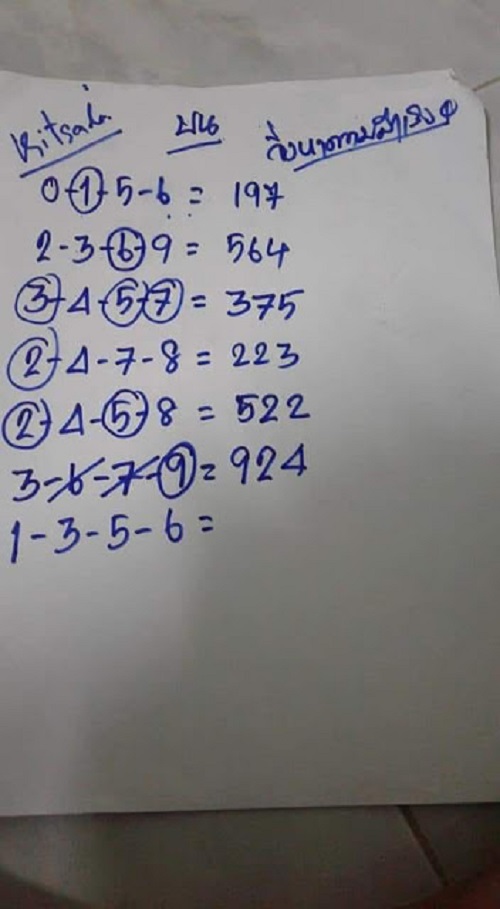 บน
0-1-5-6 = 197
2-3-6-9 = 564
3-4-5-7 = 375
2-4-7-8 = 223
2-4-5-8 = 522
3-6-7-9 = 924
1-3-5-6 =